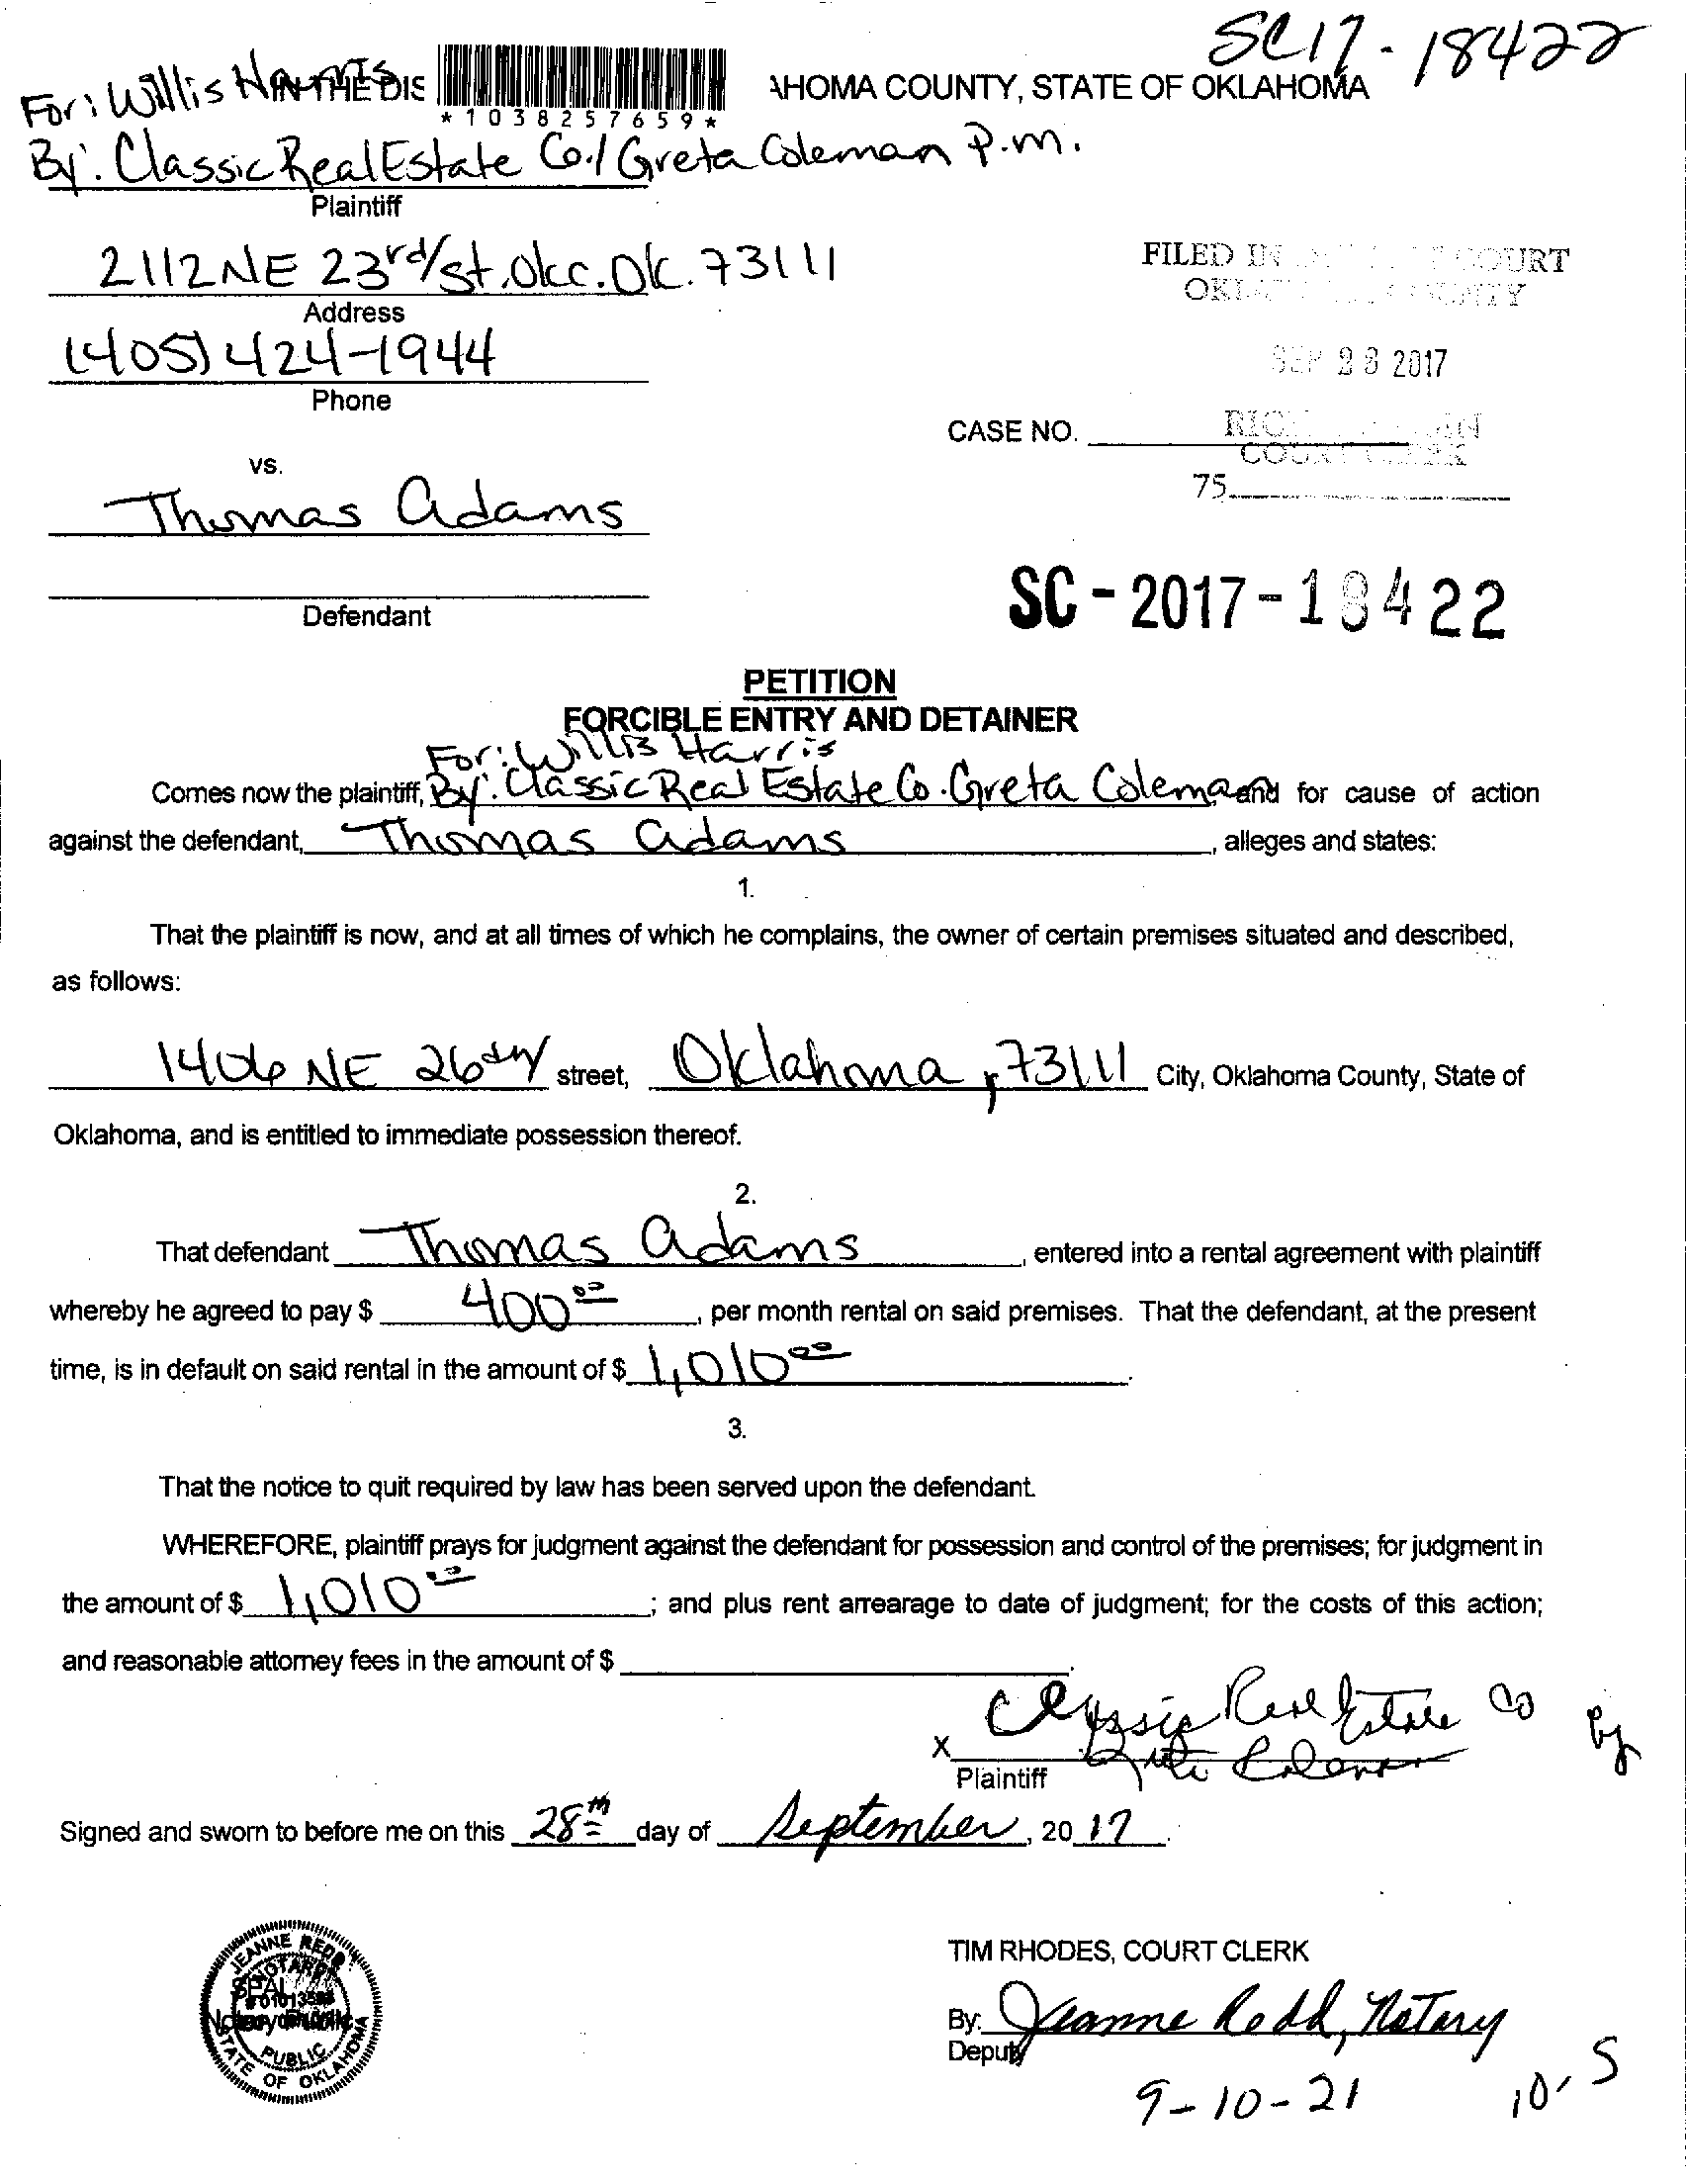 SC17-18422
For: Willis Harris IN THE DIS AHOMA COUNTY, STATE OF OKLAHOMA
*1038257659*
By: Classic Real Estate Co./ Greta Coleman P.m.
Plaintiff
2112 NE 23rd/st. Okc. Ok. 73111
Address
FILED IN COURT
(405) 424-1944
Phone
SEP 28 2017
CASE NO.
COURT CLERK
75
vs.
Thomas Adams
Defendant
SC-2017-18422
PETITION
FORCIBLE ENTRY AND DETAINER
For: Willis Harris
Comes now the plaintiff, By: Classic Real Estate Co. Greta Coleman and for cause of action
against the defendant, Thomas Adams, alleges and states:
1.
That the plaintiff is now, and at all times of which he complains, the owner of certain premises situated and described,
as follows:
1406 NE 26 street, Oklahoma, 73111 City, Oklahoma County, State of
Oklahoma, and is entitled to immediate possession thereof.
2.
That defendant Thomas Adams, entered into a rental agreement with plaintiff
whereby he agreed to pay $ 400.00, per month rental on said premises. That the defendant, at the present
time, is in default on said rental in the amount of $ 1,010.00.
3.
That the notice to quit required by law has been served upon the defendant.
WHEREFORE, plaintiff prays for judgment against the defendant for possession and control of the premises; for judgment in
the amount of $ 1,010.00; and plus rent arrearage to date of judgment; for the costs of this action;
and reasonable attorney fees in the amount of $.
Classic Real Estate Co by
X Greta Coleman
Plaintiff
Signed and sworn to before me on this 28th day of September, 20 17.
JEANNE REDD
NOTARY
SEAL
PUBLIC
STATE OF OKLAHOMA
TIM RHODES, COURT CLERK
By: Jeanne Redd, Notary
Deputy
9-10-21